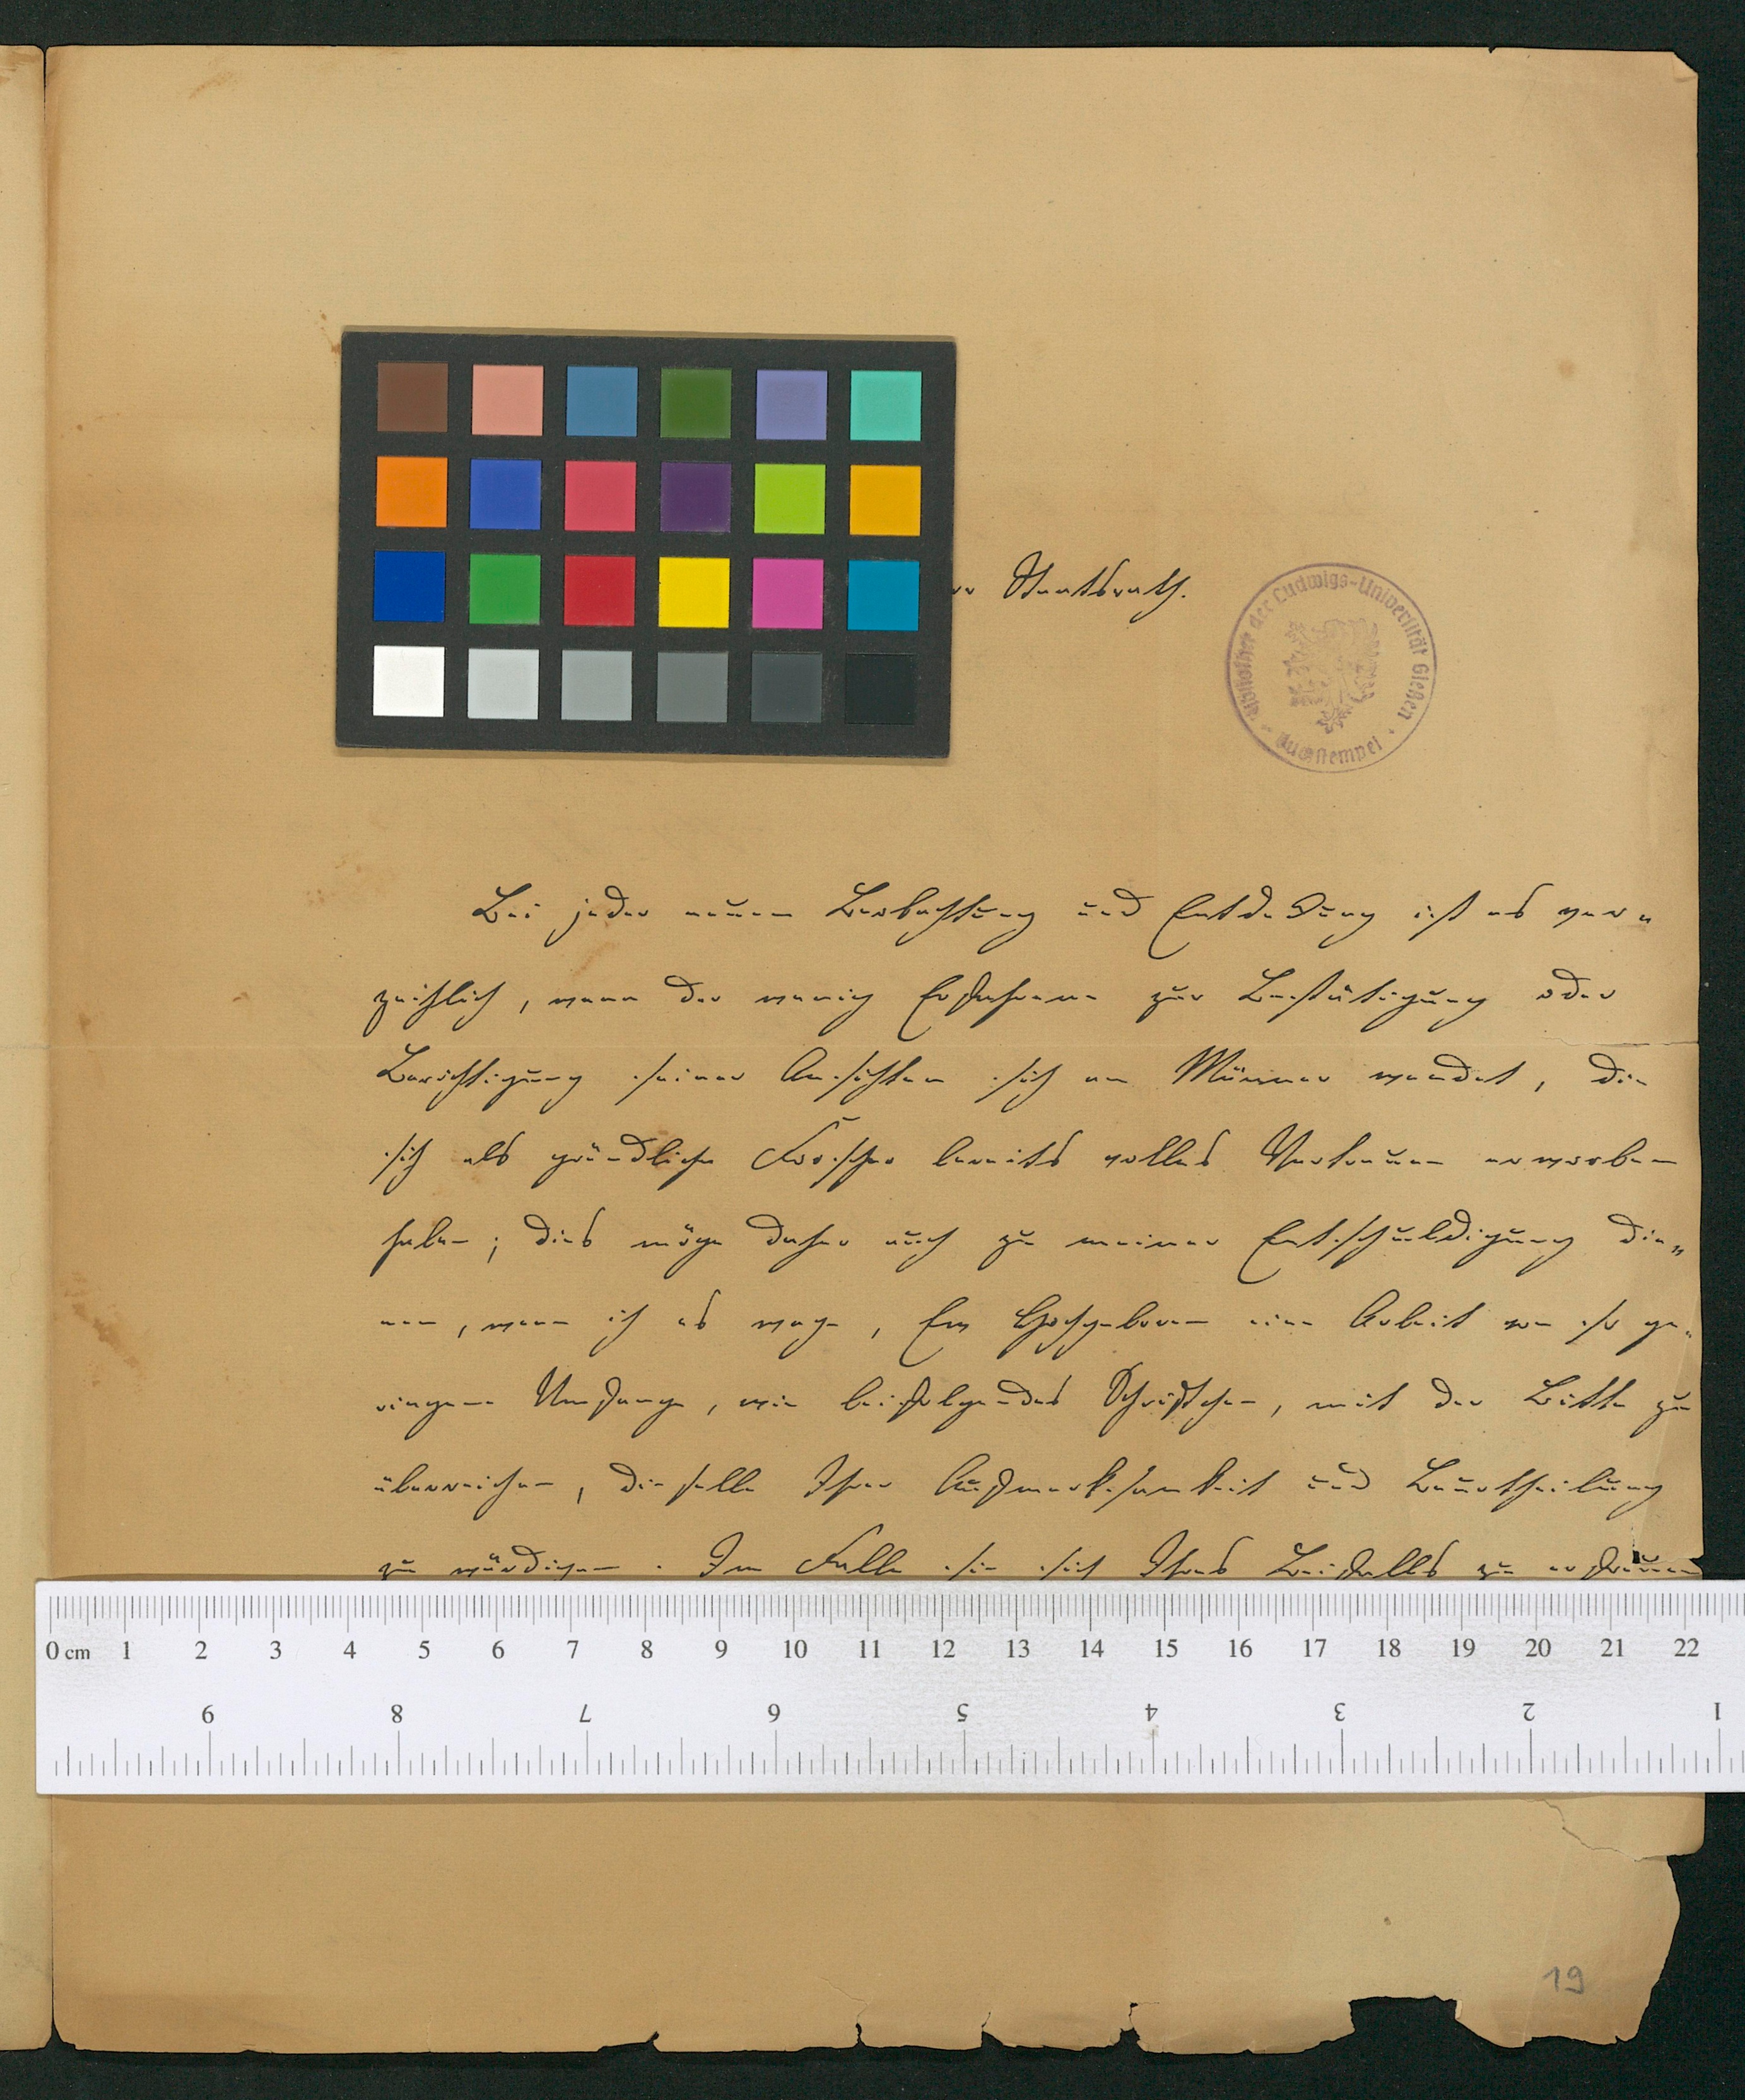 rr Staatsrath.
Bibliothek der Ludwigs-Universität Gießen
Buchstempel
Bei jeder neuen Beobachtung und Entdeckung ist es ver„
zeihlich, wenn der wenig Erfahrene zur Bestätigung oder
Berichtigung seiner Ansichten sich an Männer wendet, die
sich als gründliche Forscher bereits volles Vertrauen erworben
haben; dies möge daher auch zu meiner Entschuldigung die„
nen, wenn ich es wage, Ew Hochgeboren eine Arbeit von so ge„
ringem Umfange, wie beifolgendes Schriftchen, mit der Bitte zu
überreichen, dieselbe Ihrer Aufmerksamkeit und Beurtheilung
zu würdigen. Im Falle sie sich Ihres Beifalls zu erfreuen
0 cm 1 2 3 4 5 6 7 8 9 10 11 12 13 14 15 16 17 18 19 20 21 22
9 8 7 6 5 4 3 2 1
19